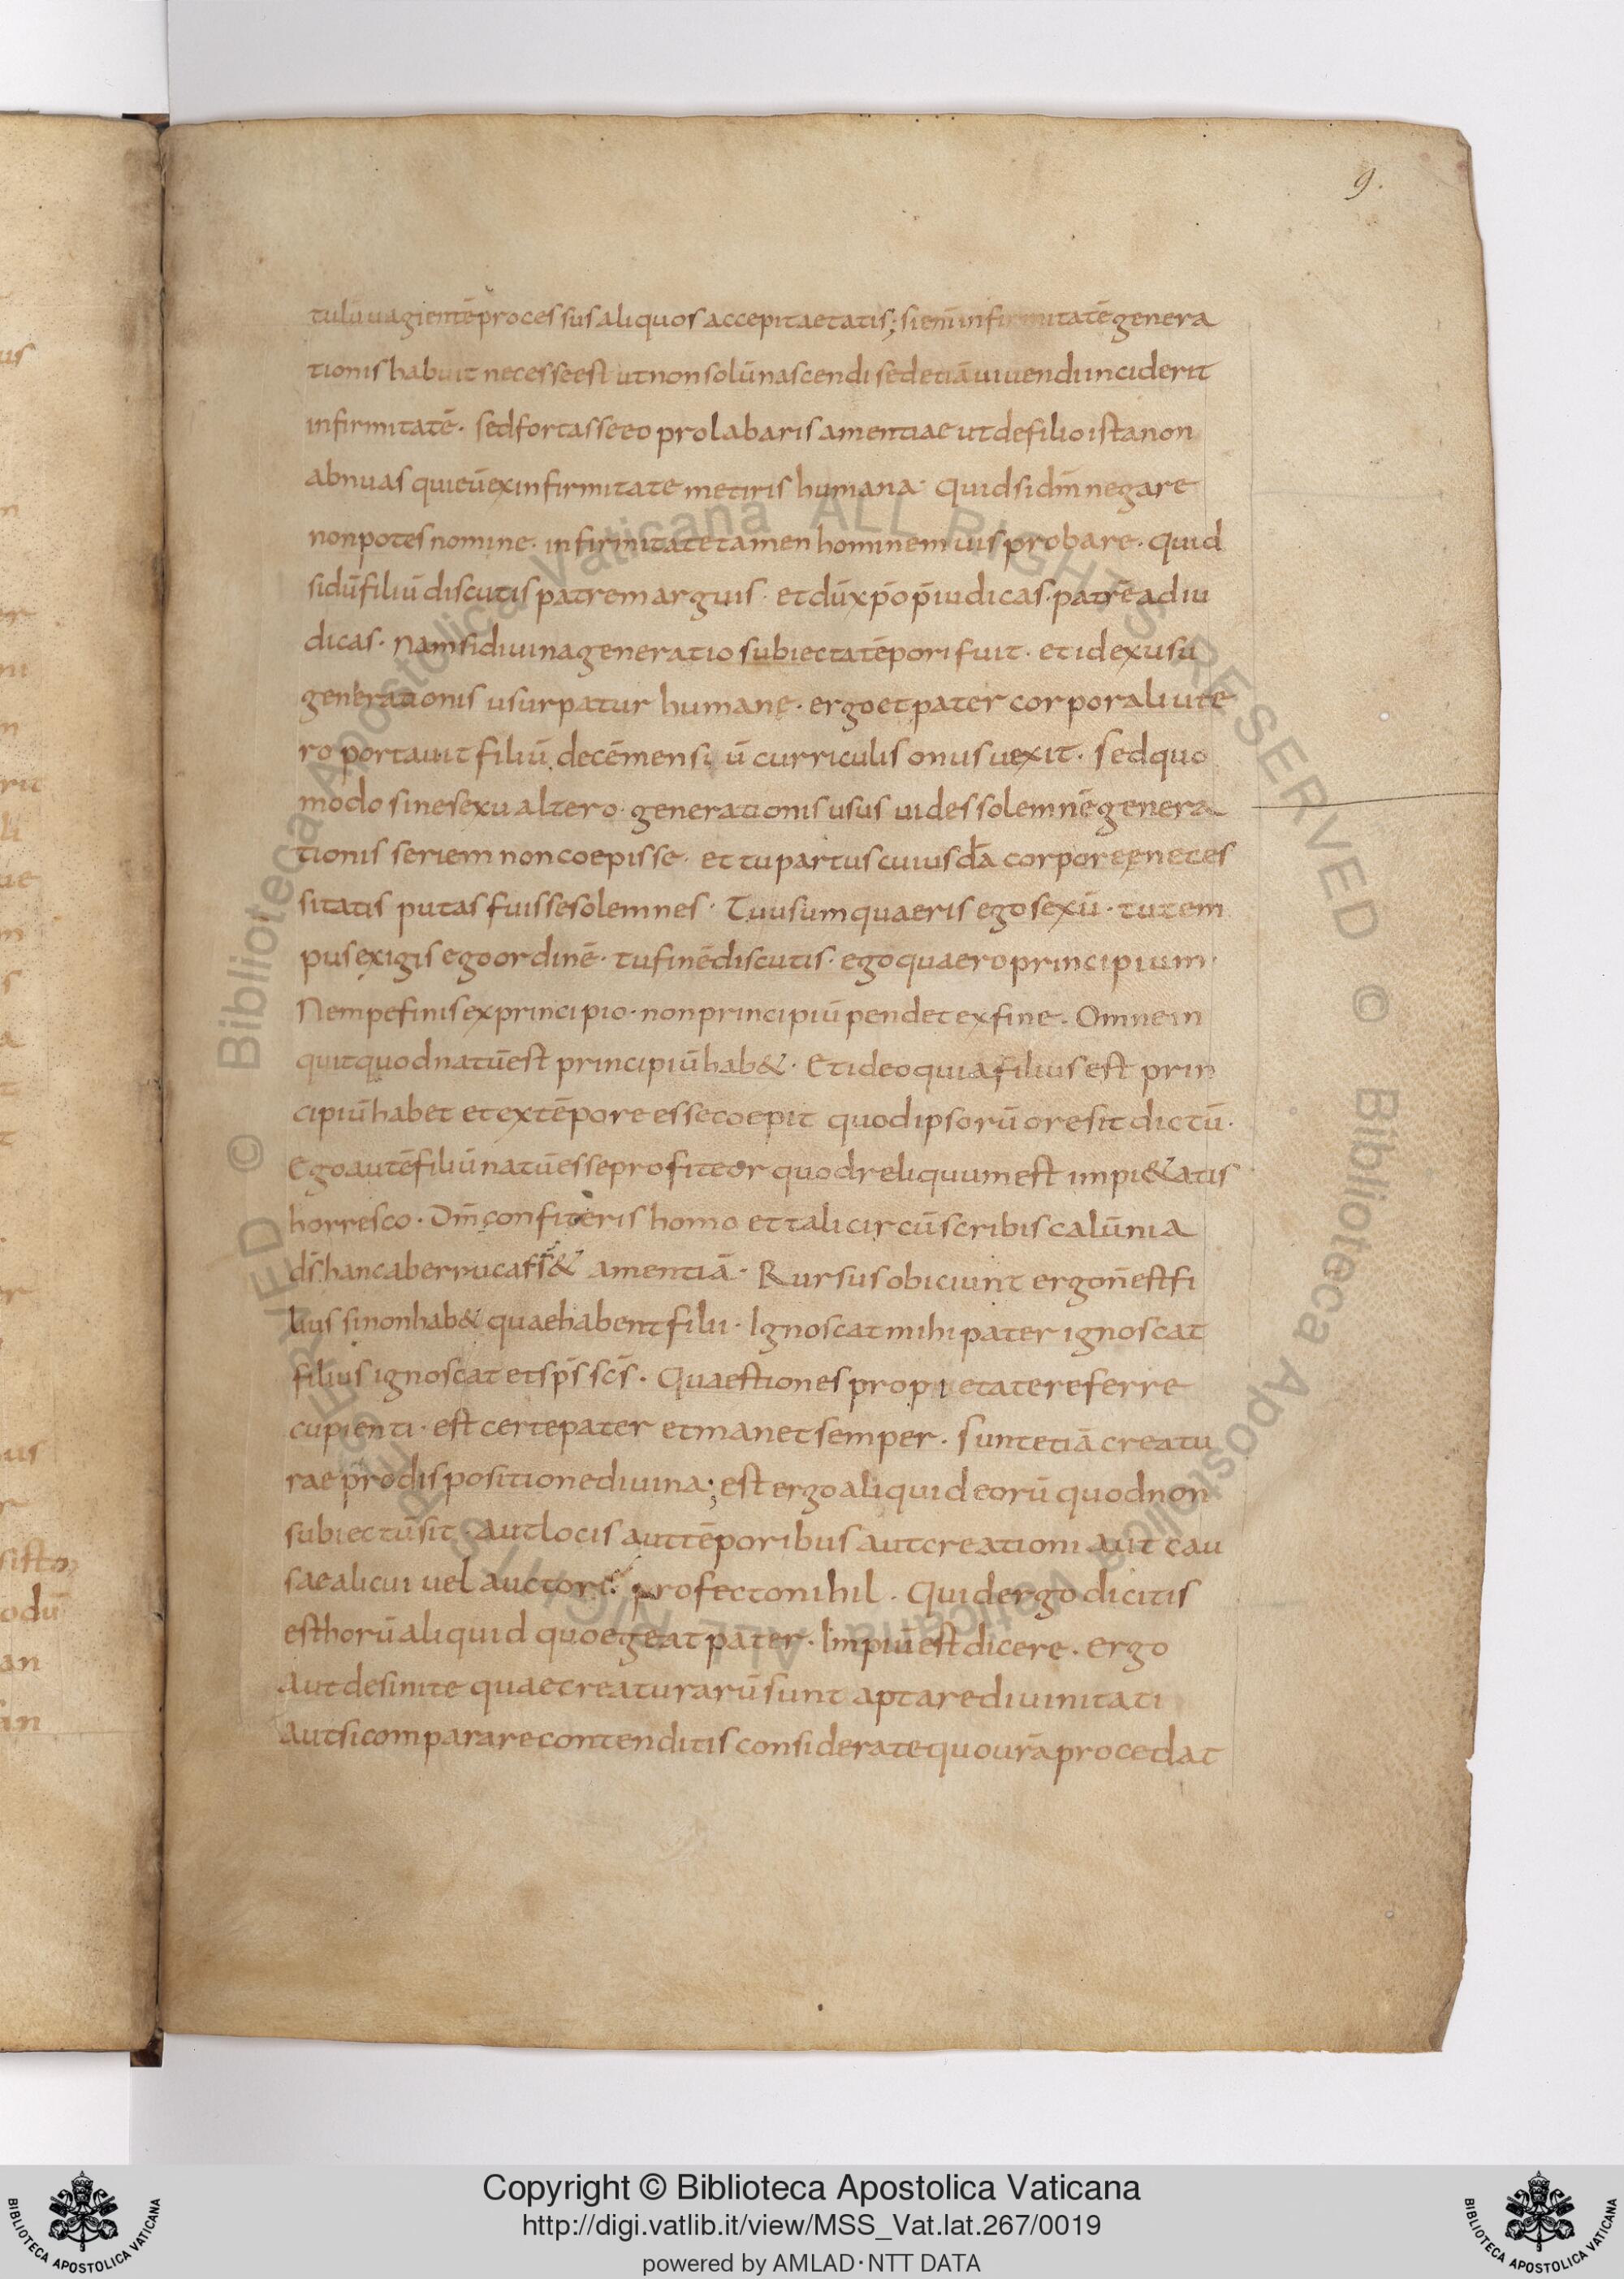 9.
tulū uagientē processus aliquos accepit aetatis; si enī infirmitatē genera
tionis habuit necesse est ut non solū nascendi sed etiā uiuendi inciderit
infirmitatē · sed fortasse eo prolabaris amentiae ut de filio ista non
abnuas qui eū ex infirmitate metiris humana · Quid si dm̄ negare
non potes nomine · infirmitate tamen hominem uis probare · quid
si dū filiū discutis patrem arguis · et dū xp̄o p̄iudicas · patrē adiu
dicas · Nam si diuina generatio subiecta tēpori fuit · et id ex usu
generationis usurpatur humanę · ergo et pater corporali ute
ro portauit filiū decē mensiū curriculis onus uexit · sed quo
modo sine sexu altero · generationis usus uides solemnē genera
tionis seriem non coepisse · et tu partus cuiusdā corporeę neces
sitatis putas fuisse solemnes · Tu usum quaeris ego sexū · tu tem
pus exigis ego ordinē · tu finē discutis · ego quaero principium ·
Nempe finis ex principio · non principiū pendet ex fine · Omne in
quit quod natū est principiū hab& · Et ideo quia filius est prin
cipiū habet et ex tēpore esse coepit quod ipsorū ore sit dictū ·
Ego autē filiū natū esse profiteor quod reliquum est impi&atis
horresco · Dm̄ confiteris homo et tali circūscribis calūnia
ds̄ hanc aberruncass& amentiā · Rursus obiciunt ergo n̄ est fi
lius si non hab& quae habent filii · Ignoscat mihi pater ignoscat
filius ignoscat et sp̄s sc̄s · Quaestiones proprietate referre
cupienti · est certe pater et manet semper · sunt etiā creatu
rae pro dispositione diuina; est ergo aliquid eorū quod non
subiectū sit · aut locis aut tēporibus aut creationi aut cau
sae alicui uel auctori profecto nihil · Quid ergo dicitis
est horū aliquid quo egeat pater · Impiū est dicere · ergo
aut desinite quae creaturarū sunt aptare diuinitati
aut si comparare contenditis considerate quo ur̄a procedat
Copyright © Biblioteca Apostolica Vaticana
http://digi.vatlib.it/view/MSS_Vat.lat.267/0019
powered by AMLAD · NTT DATA